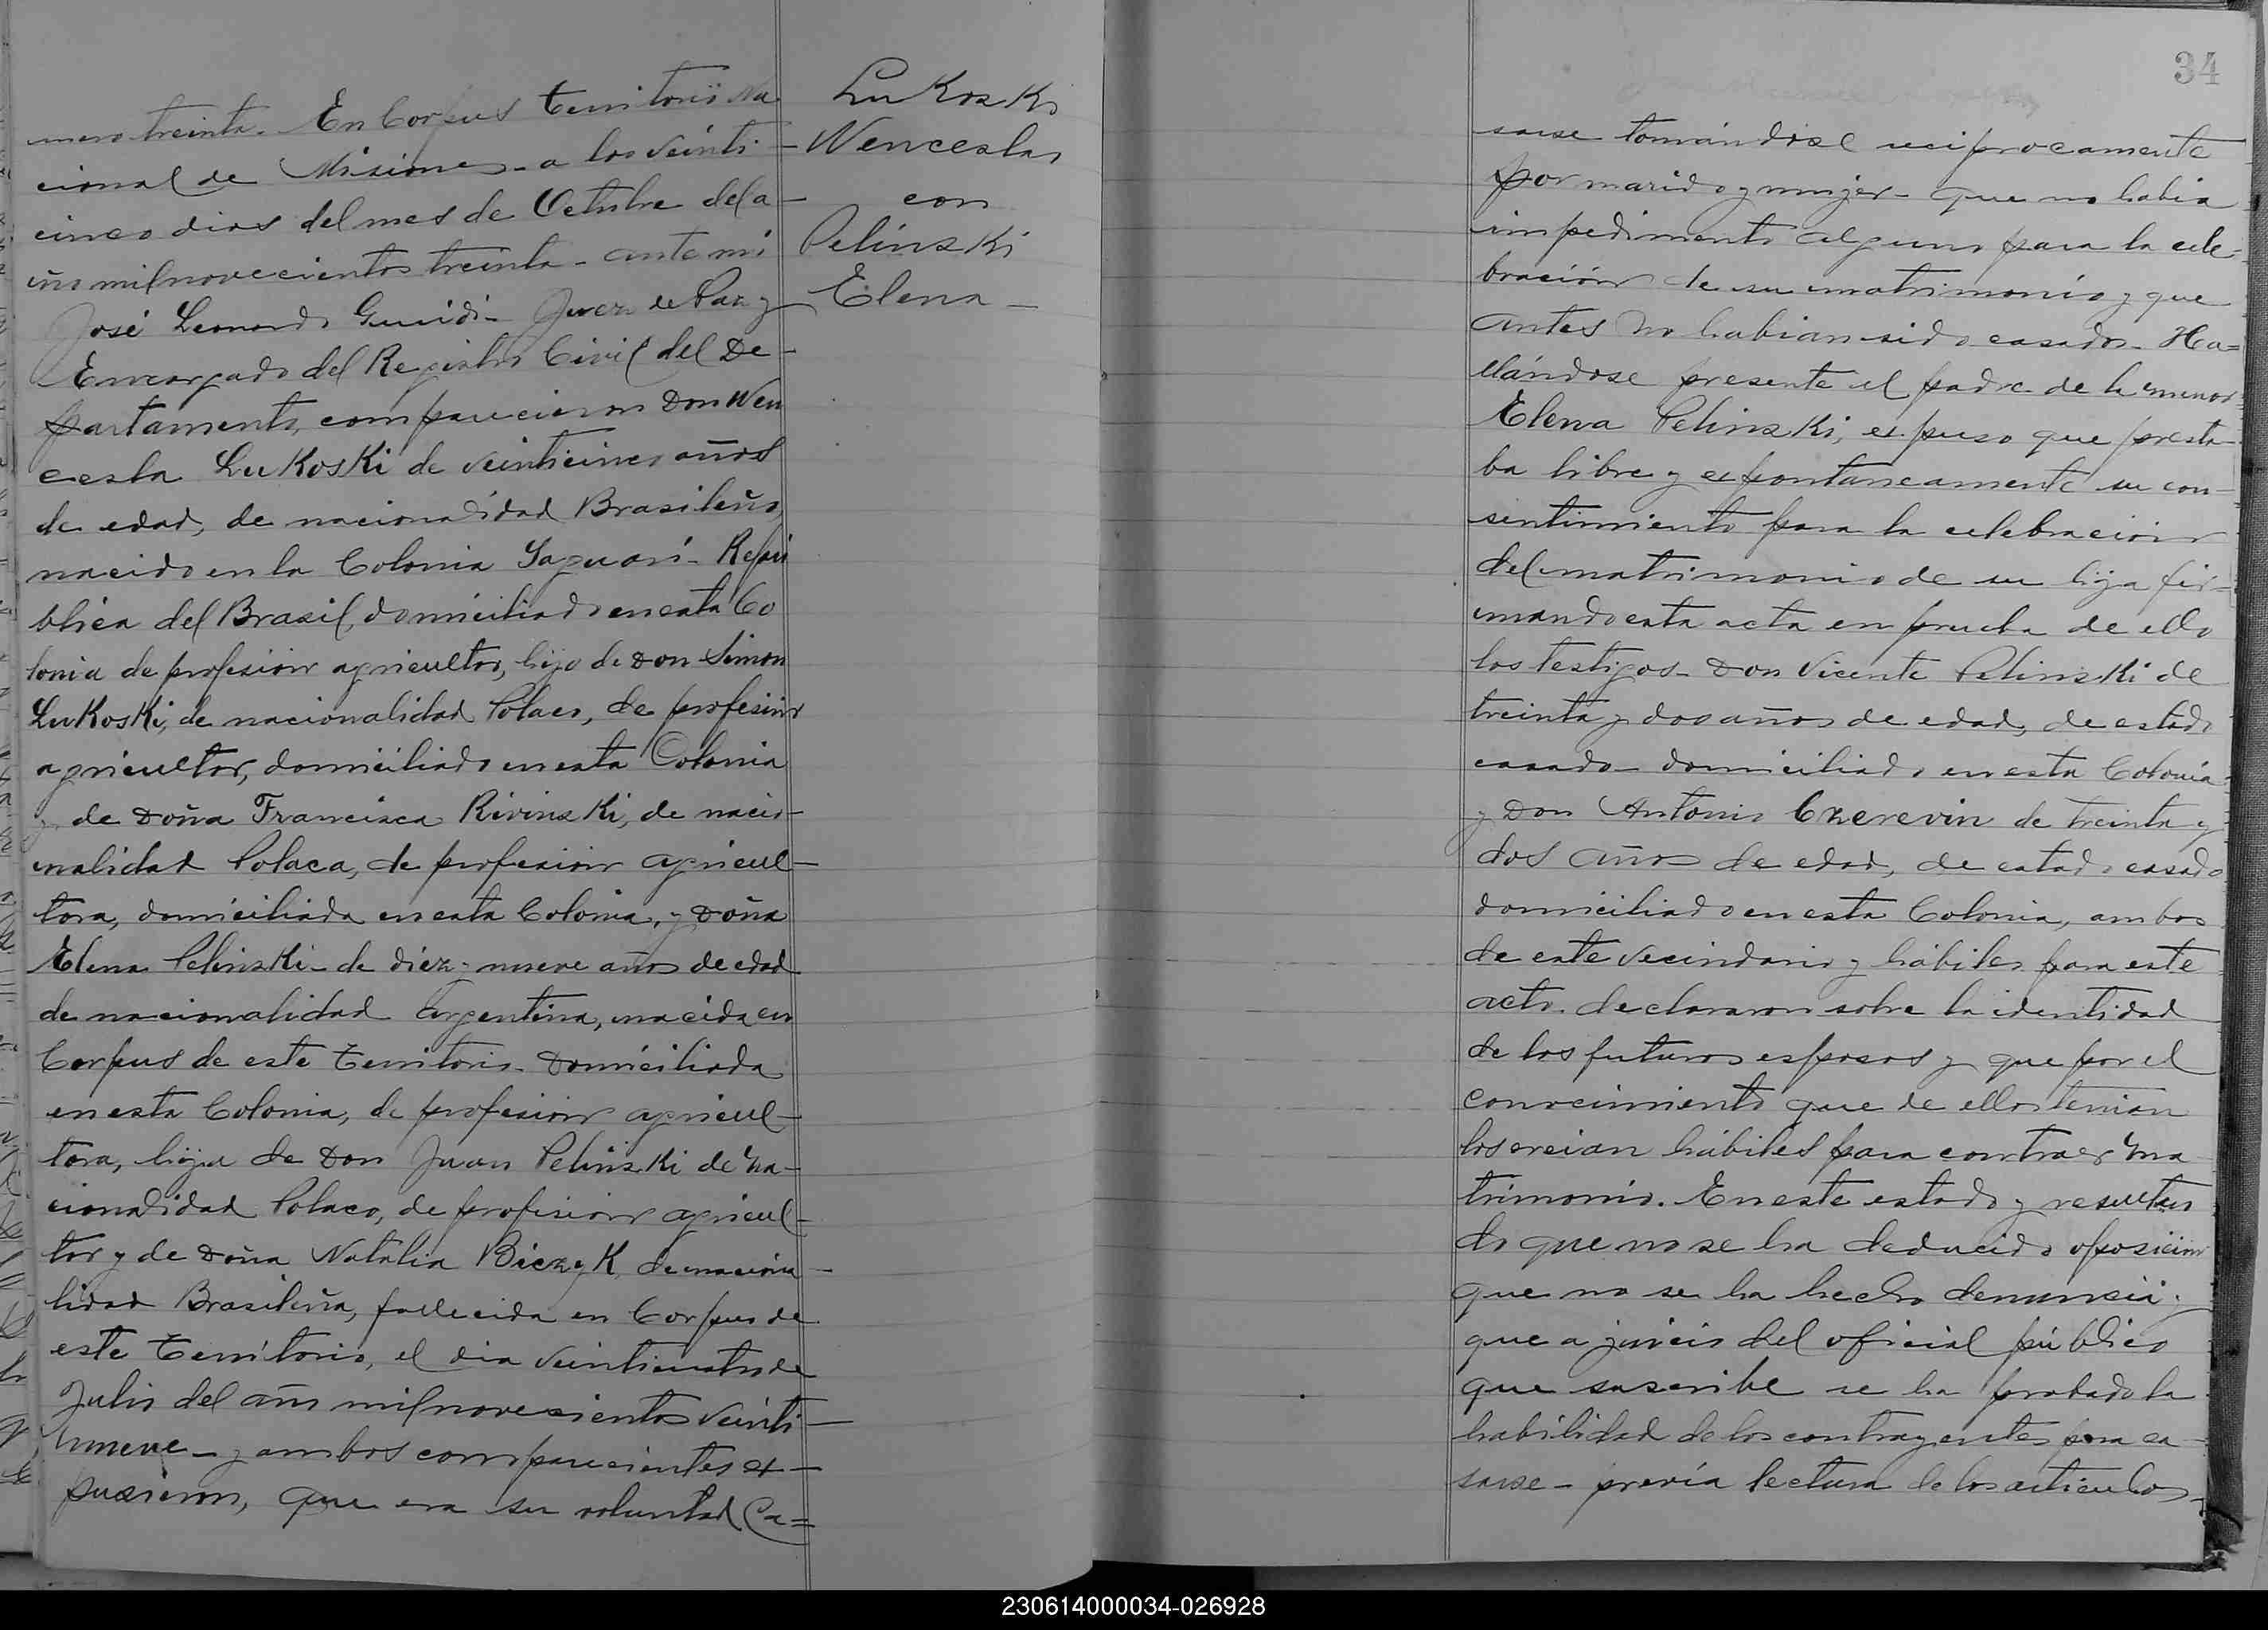 mero treinta. En Corpus Territorio Na
cional de Misiones - a los veinti
cinco dias del mes de Octubre del a-
ño mil novecientos treinta - ante mi
José Leonardo Guidi - Juez de Paz y
Encargado del Registro Civil del De-
partamento, comparecieron Don Wen
cesla Lukoski de veinticinco años
de edad, de nacionalidad Brasileño,
nacido en la Colonia Yaguari - Repú
blica del Brasil, domiciliado en esta Co
lonia de profesión agricultor, hijo de Don Simon
Lukoski, de nacionalidad Polaco, de profesión
agricultor, domiciliado en esta Colonia
y de Doña Francisca Rivinski, de nacio-
nalidad Polaca, de profesión agricul-
tora, domiciliada en esta Colonia, y Doña
Elena Pelinski - de diez y nueve años de edad
de nacionalidad Argentina, nacida en
Corpus de este Territorio - Domiciliada
en esta Colonia, de profesión agricul-
tora, hija de Don Juan Pelinski de na-
cionalidad Polaco, de profesión agricul-
tor y de Doña Natalia Biczyk, de naciona-
lidad Brasileña, fallecida en Corpus de
este Territorio, el dia veinticuatro de
Julio del año mil novesientos veinti-
nueve - y ambos comparecientes ex-
pusieron, que era su voluntad Ca=
Lukoski
Wenceslao
con
Pelinski
Elena -
34
sarse tomándose reciprocamente
por marido y mujer - que no habia
impedimento alguno para la cele-
bración de su matrimonio y que
antes no habian sido casados - Ha=
llándose presente el padre de la menor
Elena Pelinski, expuso que presta-
ba libre y espontaneamente su con-
sentimiento para la celebración
del matrimonio de su hija fir-
mando esta acta en prueba de ello
los testigos - Don Vicente Pelinski de
treinta y dos años de edad, de estado
casado - domiciliado en esta Colonia
y Don Antonio Czerevin de treinta y
dos años de edad, de estado casado
domiciliado en esta Colonia, ambos
de este vecindario y hábiles para este
acto. declararon sobre la identidad
de los futuros esposos y que por el
conocimiento que de ellos tenian
los creian hábiles para contraer ma
trimonio. En este estado y resultan
do que no se ha deducido oposición
que no se ha hecho denuncia y
que a juicio del oficial público
que suscribe se ha probado la
habilidad de los contrayentes para ca-
sarse - previa lectura de los articulos -
230614000034-026928